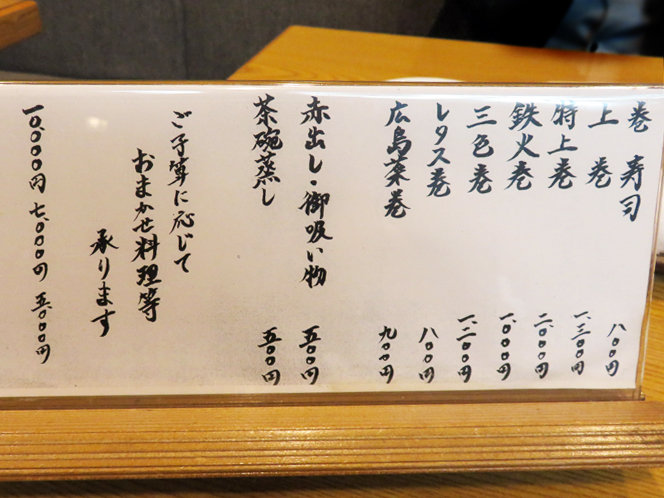 巻寿司 八〇〇円
上巻 一、三〇〇円
特上巻 二、〇〇〇円
鉄火巻 一、〇〇〇円
三色巻 一、二〇〇円
レタス巻 八〇〇円
広島菜巻 九〇〇円
赤出し・御吸い物 五〇〇円
茶碗蒸し 五〇〇円
ご予算に応じて
おまかせ料理等
承ります
一〇、〇〇〇円 七、〇〇〇円 五、〇〇〇円